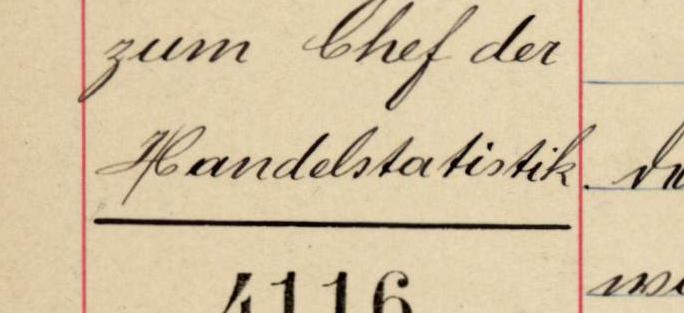 zum Chef der
Handelstatistik.
4116